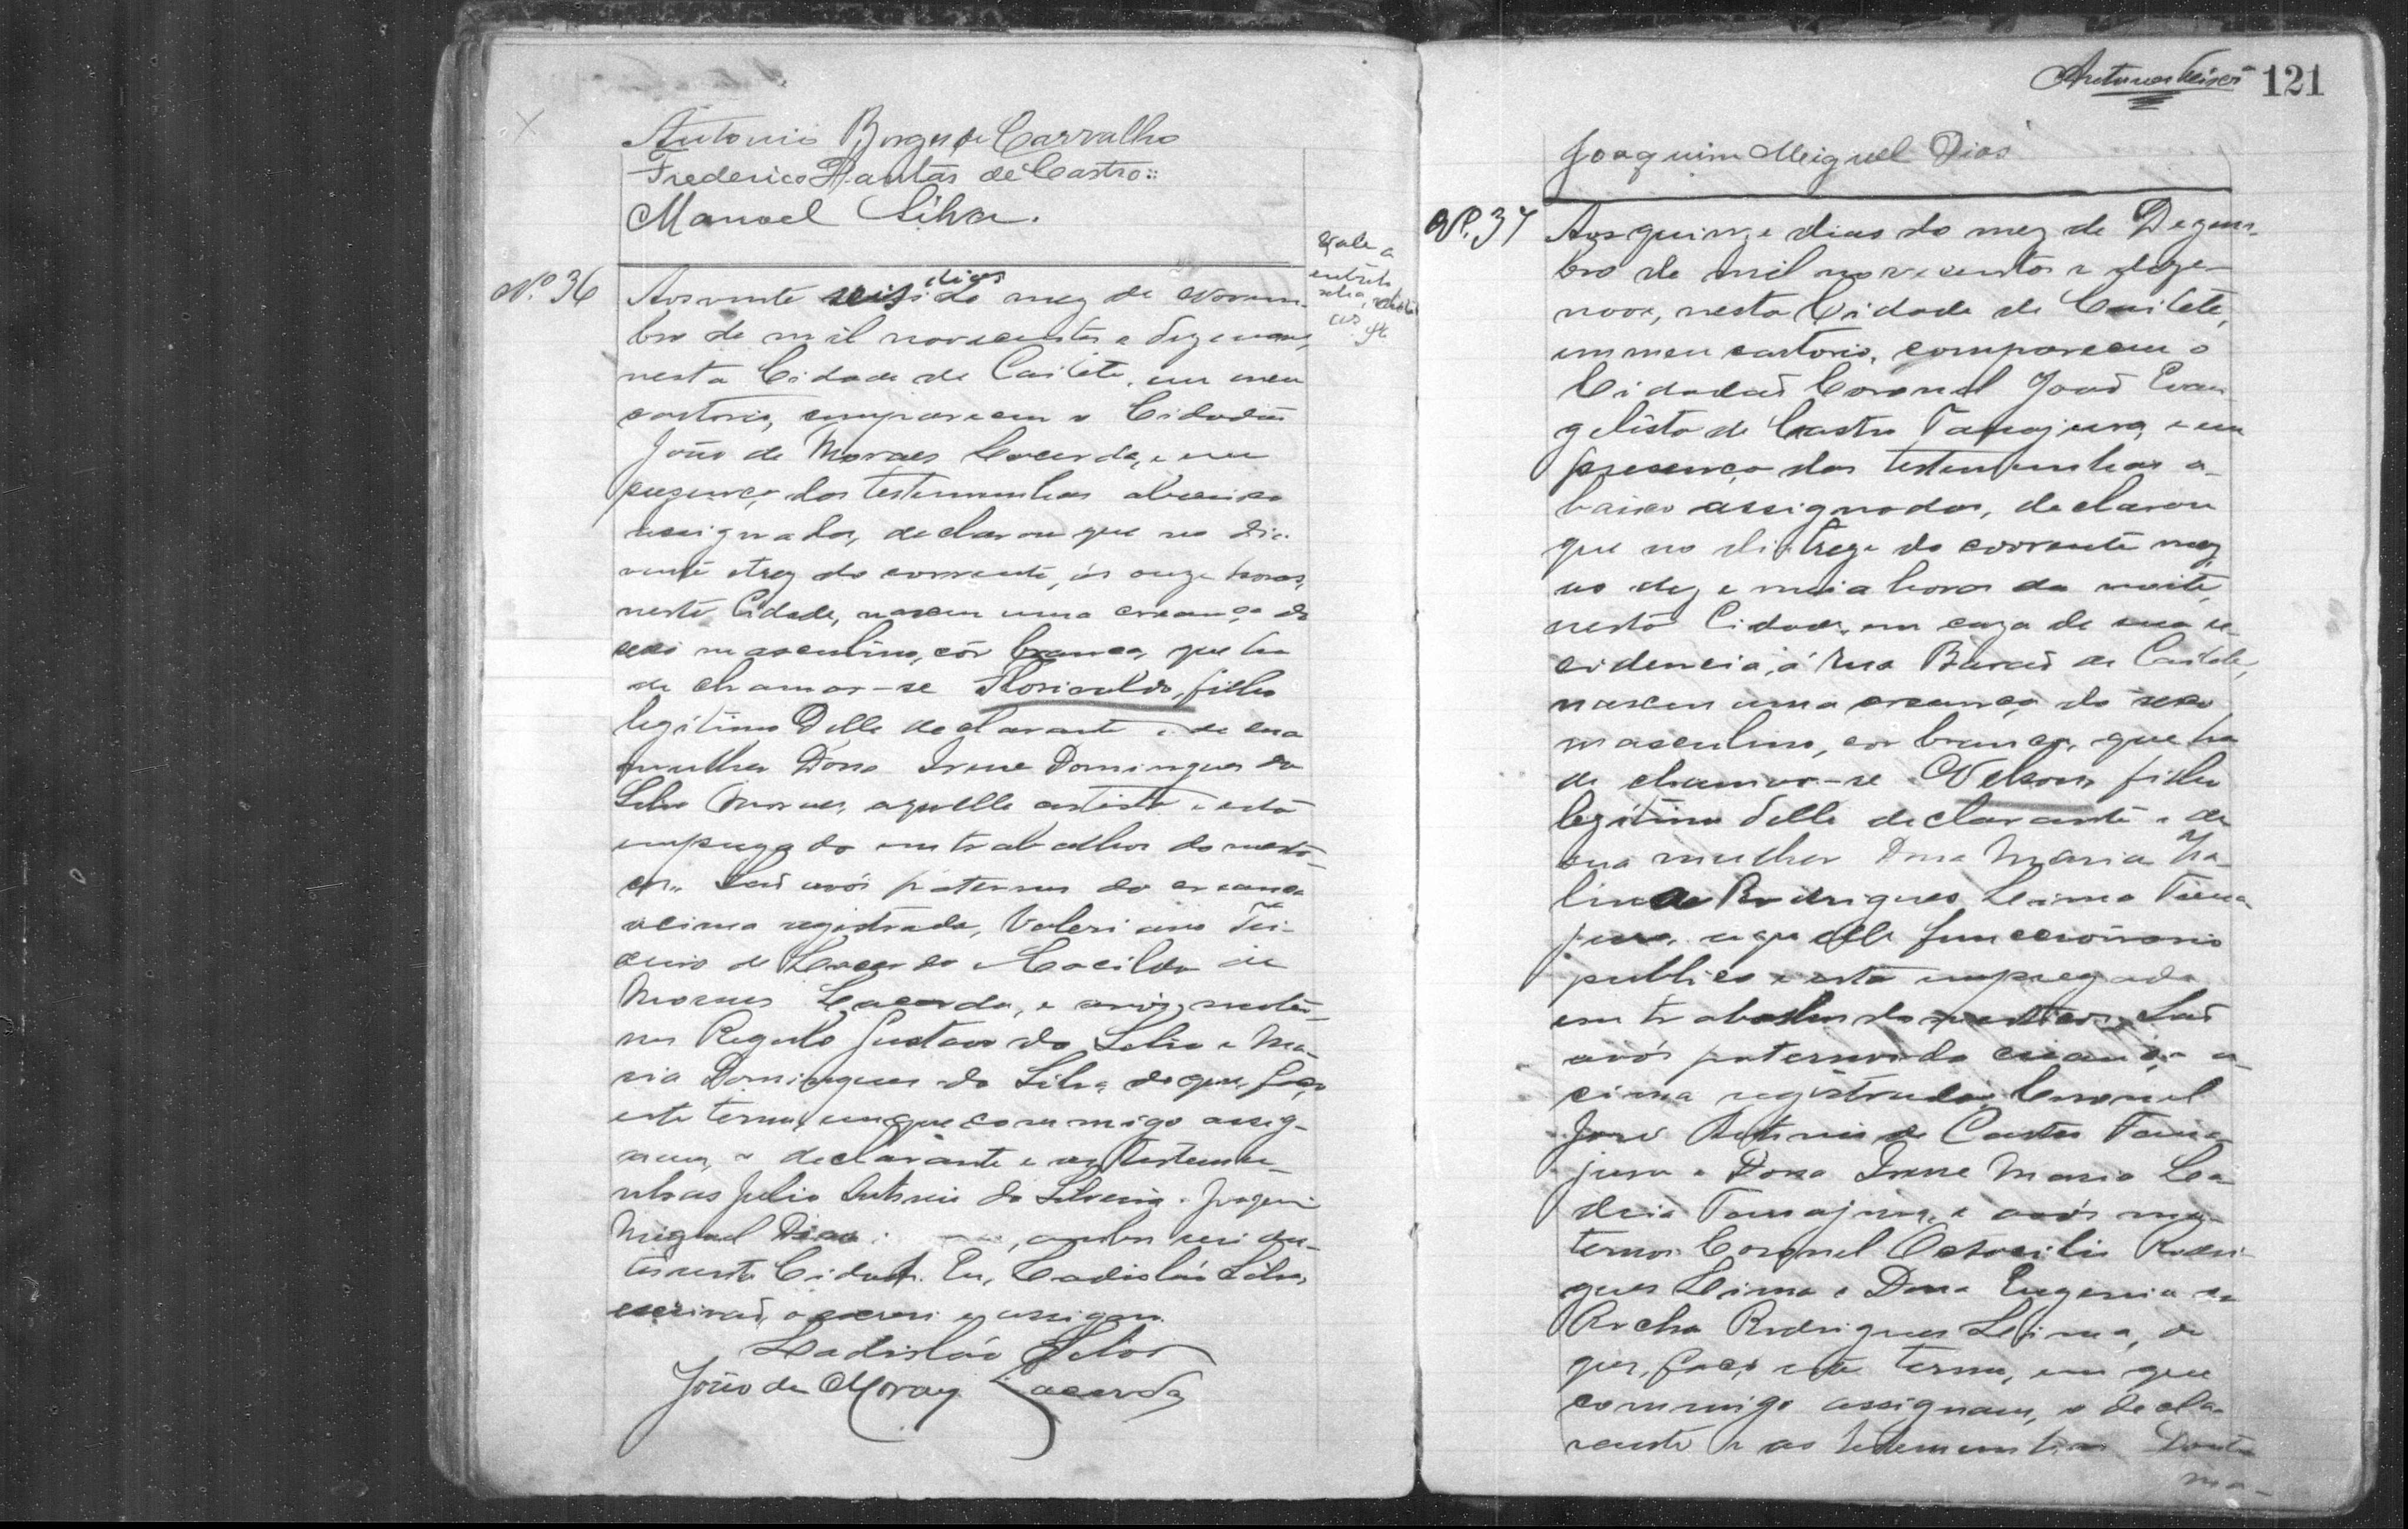 Antonio Borges de Carvalho
Frederico Dantas de Castro
Manoel Silva.
Vale a
entrelinha
Nº 36
Aos vinte seis dias do mez de Novem-
bro de mil novecentos e dezenove,
nesta Cidade de Caiteté, em meu
cartorio, compareceu o Cidadão
João de Moraes Lacerda, e em
presença das testemunhas abaixo
assignadas, declarou que no dia
vinte e trez do corrente, ás onze horas,
nesta Cidade, nasceu uma creança do
sexo masculino, côr branca, que ha
de chamar-se Florisvaldo, filho
legitimo delle declarante e de sua
mulher Dona Irene Domingues da
Silva Moraes, aquelle artista e esta
empregada em trabalhos domesti-
cos. São avós paternos da creança
acima registrada, Valeriano
de Lacerda e de
Moraes Lacerda, e avós mater-
nos Regulo Gustavo da Silva e Ma-
ria Domingues da Silva, do que, faço
este termo, em que commigo assig-
nam, o declarante e as testemu-
nhas Julio Antonio da Silveira e Joaquim
Miguel Dias, ambos residen-
tes nesta Cidade. Eu, Ladisláo Silva,
escrivão, o escrevi e assigno.
Ladisláo Silva
João de Moraes Lacerda
121
Joaquim Miguel Dias
Nº 37
Aos quinze dias do mez de Dezem-
bro de mil novecentos e deze-
nove, nesta Cidade de Caiteté,
em meu cartorio, compareceu o
Cidadão Coronel João Evan-
gelista de Castro Tanajura, e em
presença das testemunhas a-
baixo assignadas, declarou
que no dia treze do corrente mez,
as dez e meia horas da noite,
nesta Cidade, em caza de sua re-
sidencia, á rua Barão de Caiteté,
nasceu uma creança do sexo
masculino, cor branca, que ha
de chamar-se Nelson, filho
legitimo delle declarante e de
sua mulher Dona Maria
Rodrigues Lima Tana-
jura, aquelle funccionario
publico e esta empregada
em trabalhos domesticos. São
avós paternos da creança a-
cima registrada, Coronel
José Antonio de Castro Tana-
jura e Dona Irene Maria Leo-
cadia Tanajura, e avós ma-
ternos Coronel Octacilio Rodri-
gues Lima e Dona Eugenia da
Rocha Rodrigues Lima, do
que, faço este termo, em que
commigo assignam, o decla-
rante e as testemunhas Doutor
Ma-